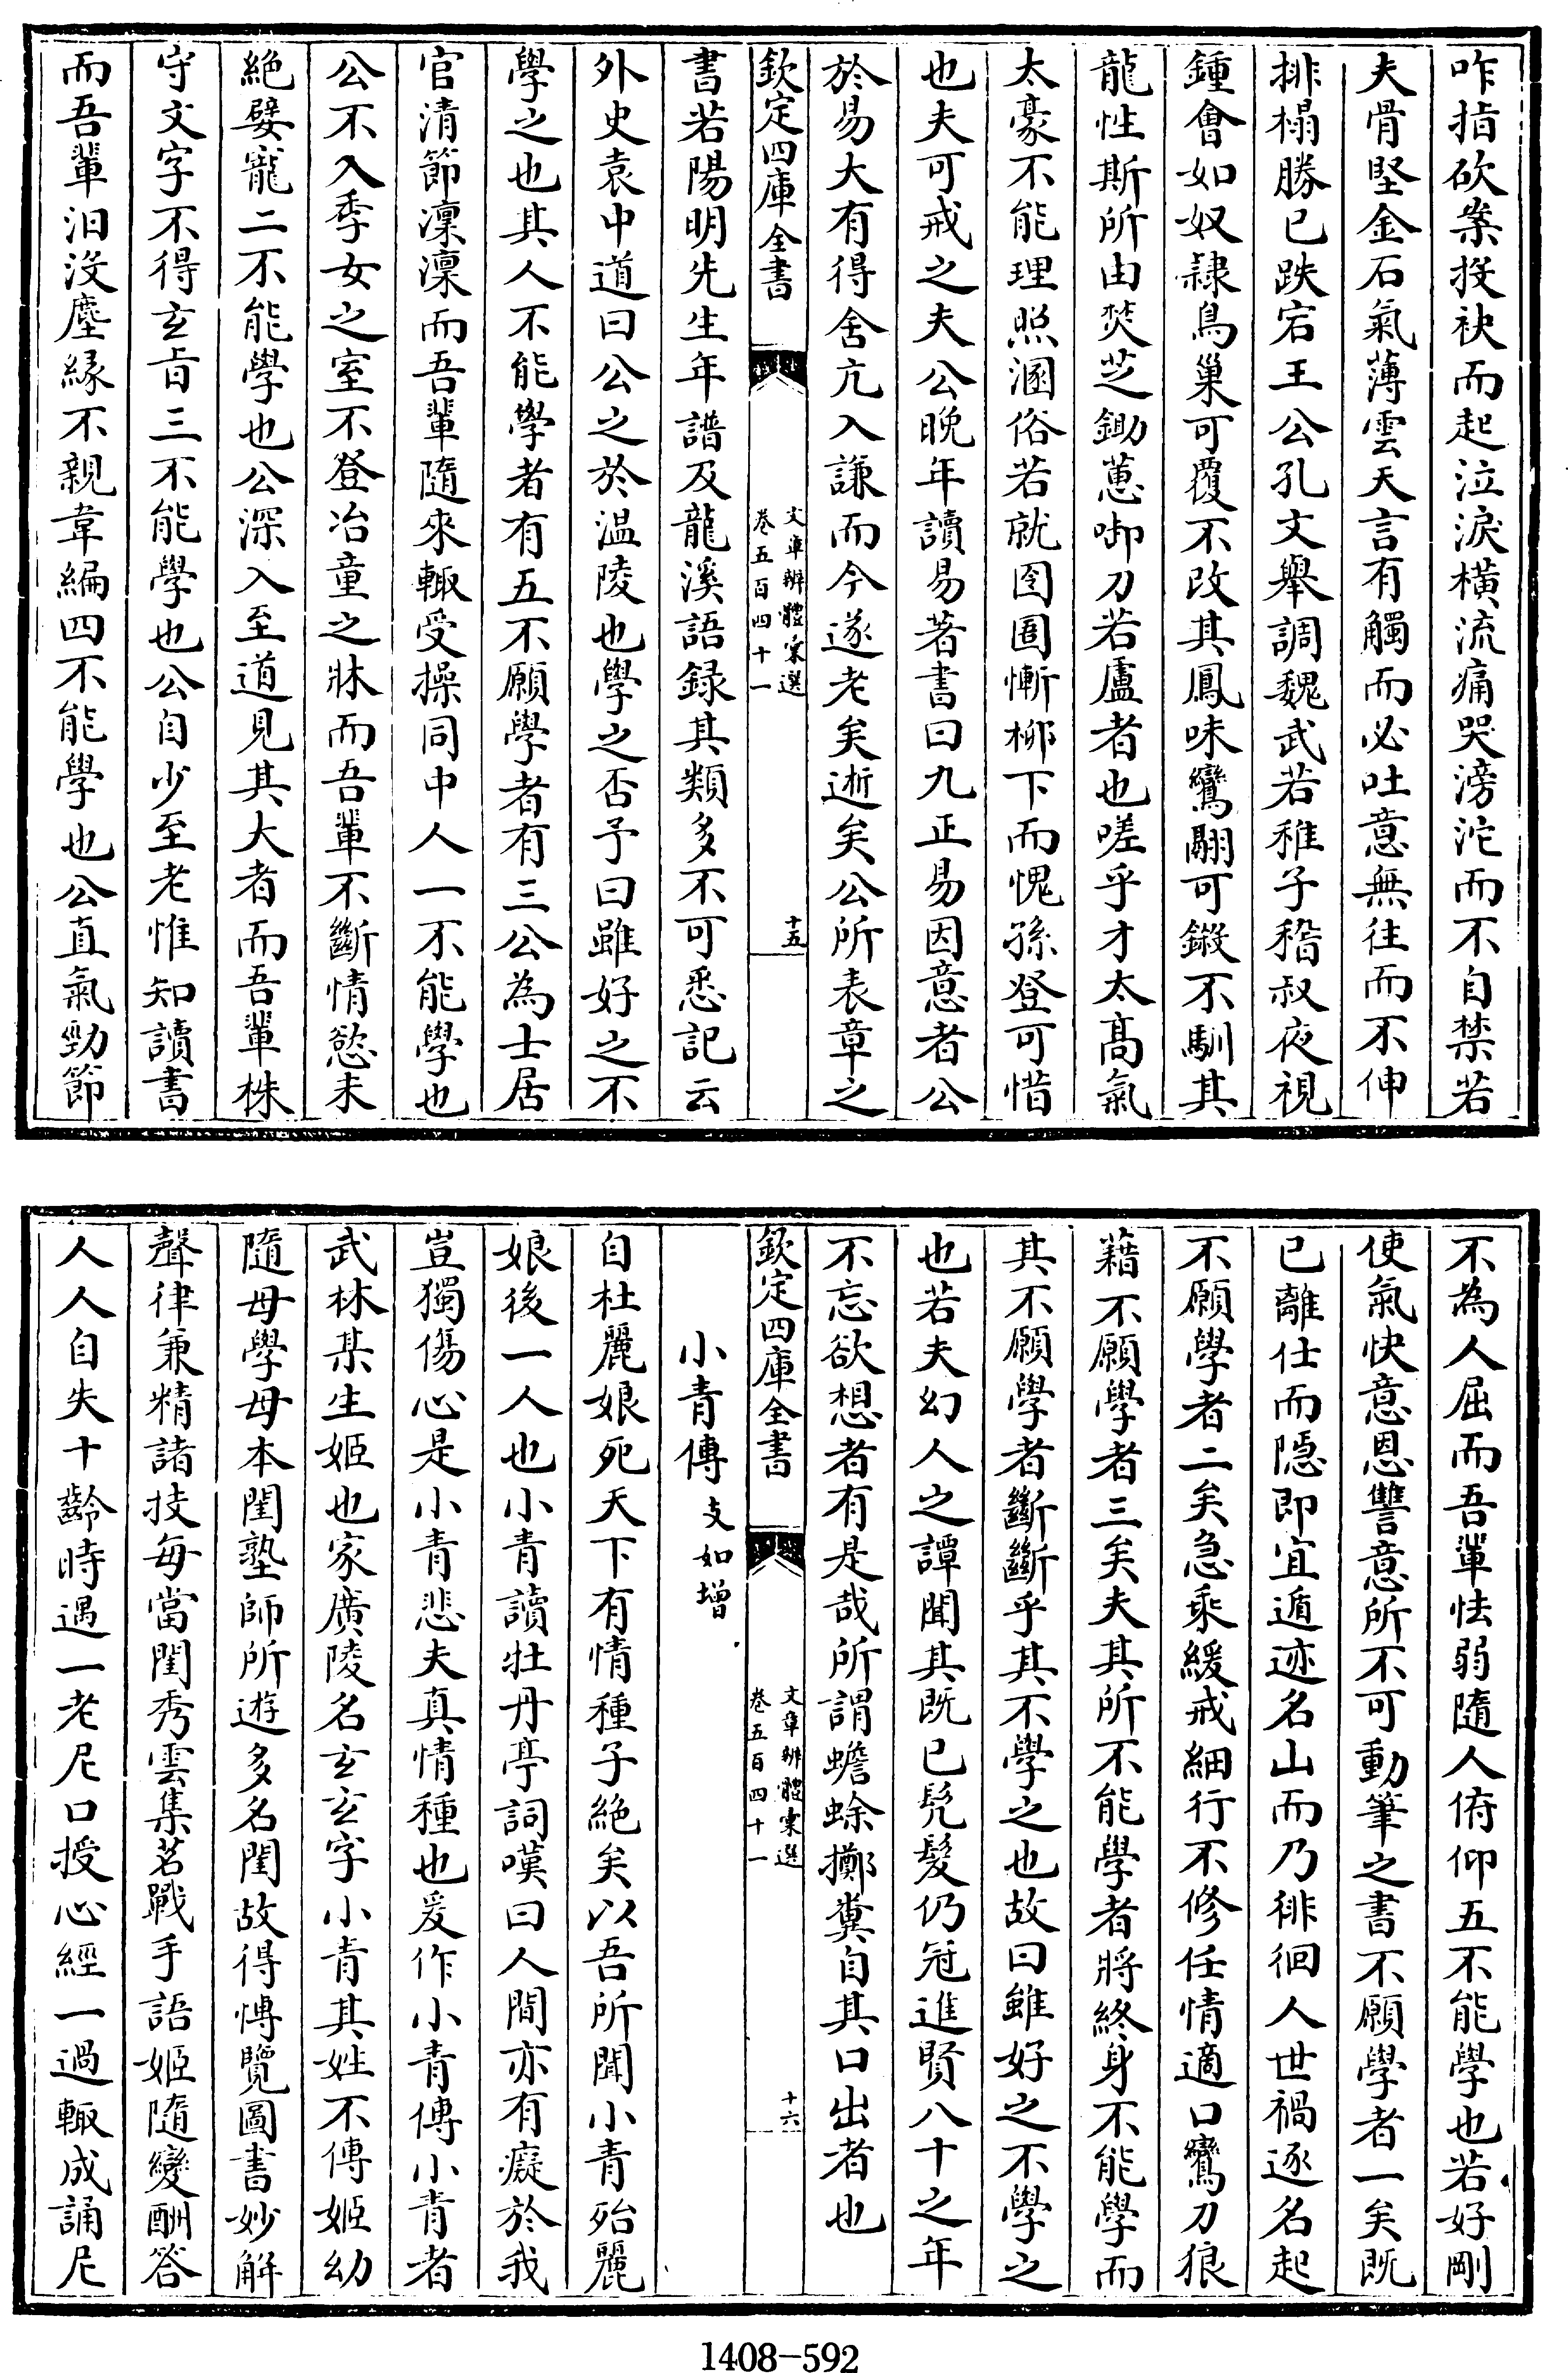 咋指砍案投袂而起泣淚橫流痛哭滂沱而不自禁若
夫骨堅金石氣薄雲天言有觸而必吐意無往而不伸
排榻勝已跌宕王公孔文舉調魏武若稚子稽叔夜視
鍾會如奴隷鳥巢可覆不改其鳳味鸞翮可鎩不馴其
龍性斯所由焚芝鋤蕙啣刀若盧者也嗟乎才太髙氣
太豪不能理照溷俗若就囹圄慚栁下而愧孫登可惜
也夫可戒之夫公晚年讀易著書曰九正易因意者公
於易大有得舍亢入謙而今遂老矣逝矣公所表章之
欽定四庫全書
文章辨體彚選
卷五百四十一
十五
書若陽明先生年譜及龍溪語録其類多不可悉記云
外史袁中道曰公之於温陵也學之否予曰雖好之不
學之也其人不能學者有五不願學者有三公為士居
官清節凜凜而吾輩隨來輙受操同中人一不能學也
公不入季女之室不登冶童之牀而吾輩不斷情慾未
絶嬖寵二不能學也公深入至道見其大者而吾輩株
守文字不得玄㫖三不能學也公自少至老惟知讀書
而吾輩汨没塵緣不親韋編四不能學也公直氣勁節
不為人屈而吾輩怯弱隨人俯仰五不能學也若好剛
使氣快意恩讐意所不可動筆之書不願學者一矣既
已離仕而隠即宜遁迹名山而乃徘徊人世禍逐名起
不願學者二矣急乘緩戒細行不修任情適口鸞刀狼
藉不願學者三矣夫其所不能學者將終身不能學而
其不願學者斷斷乎其不學之也故曰雖好之不學之
也若夫幻人之譚聞其既已髠髮仍冠進賢八十之年
不忘欲想者有是哉所謂蟾蜍擲糞自其口出者也
欽定四庫全書
文章辨體彚選
卷五百四十一
十六
小青傳 支如增
自杜麗娘死天下有情種子絶矣以吾所聞小青殆麗
娘後一人也小青讀牡丹亭詞嘆曰人間亦有癡於我
豈獨傷心是小青悲夫真情種也爰作小青傳小青者
武林某生姬也家廣陵名玄玄字小青其姓不傳姬幼
隨母學母本閨塾師所遊多名閨故得慱覽圖書妙解
聲律兼精諸技每當閨秀雲集茗戰手語姬隨變酬答
人人自失十齡時遇一老尼口授心經一過輙成誦尼
1408-592